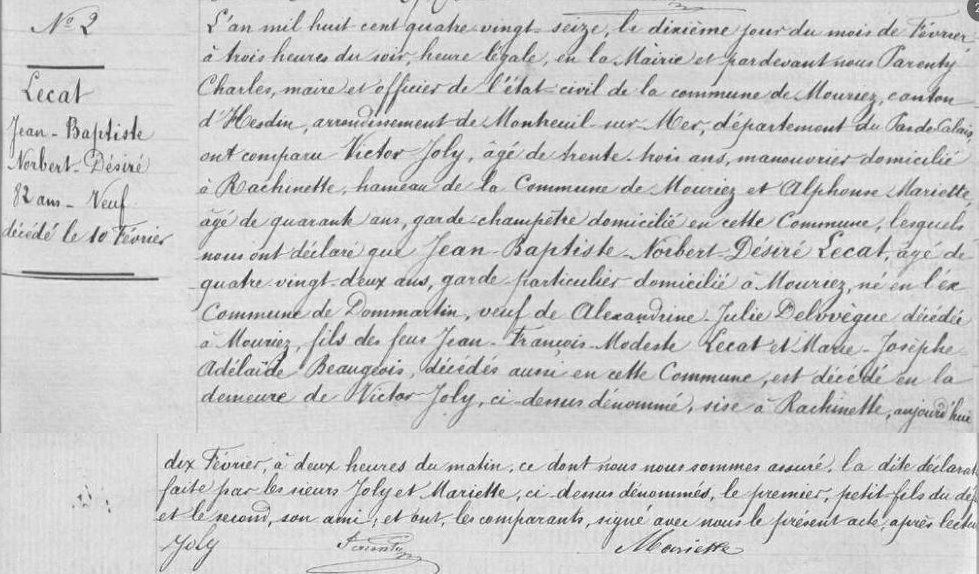 Nº 2
Lecat
Jean-Baptiste
Norbert-Désiré
82 ans - Veuf
décédé le 10 Février
L'an mil huit cent quatre vingt-seize, le dixième jour du mois de Février
à trois heures du soir, heure légale, en la Mairie et pardevant nous Parenty
Charles, maire et officier de l'état-civil de la commune de Mouriez, canton
d'Hesdin, arrondissement de Montreuil-sur-Mer, département du Pas-de-Calais,
ont comparu Victor Joly, âgé de trente-trois ans, manouvrier domicilié
à Rachinette, hameau de la Commune de Mouriez et Alphonse Mariette
âgé de quarante ans, garde-champêtre domicilié en cette Commune, lesquels
nous ont déclaré que Jean-Baptiste-Norbert-Désiré Lecat, âgé de
quatre vingt-deux ans, garde-particulier domicilié à Mouriez, né en l'ex
Commune de Dommartin, veuf de Alexandrine-Julie Delovègue décédée
à Mouriez, fils des feus Jean-François-Modeste Lecat et Marie-Josèphe
Adélaïde Beaugeois, décédés aussi en cette Commune, est décédé en la
demeure de Victor Joly, ci-dessus dénommé, sise à Rachinette, aujourd'hui
dix Février, à deux heures du matin, ce dont nous nous sommes assuré, la dite déclarat
faite par les sieurs Joly et Mariette, ci-dessus dénommés, le premier, petit fils du dé
et le second, son ami, et ont, les comparants, signé avec nous le présent acte, après lectu
Joly Parenty Mariette